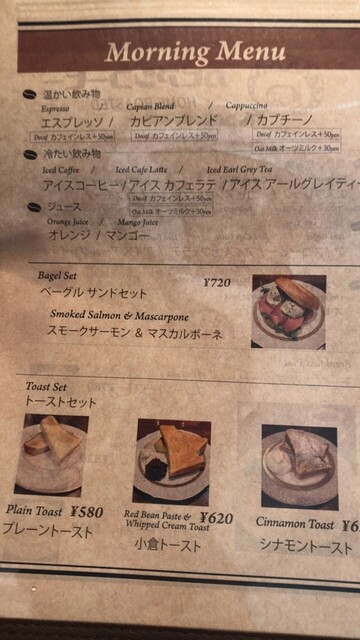 Morning Menu
温かい飲み物
Espresso / Capian Blend / Cappuccino
エスプレッソ / カピアンブレンド / カプチーノ
Decaf カフェインレス+50yen Decaf カフェインレス+50yen Decaf カフェインレス+50yen
Oat Milk オーツミルク+30yen
冷たい飲み物
Iced Coffee / Iced Cafe Latte / Iced Earl Grey Tea
アイスコーヒー / アイス カフェラテ / アイス アールグレイティー
Decaf カフェインレス+50yen
Oat Milk オーツミルク+50yen
ジュース
Orange Juice / Mango Juice
オレンジ / マンゴー
Bagel Set ¥720
ベーグル サンドセット
Smoked Salmon & Mascarpone
スモークサーモン & マスカルポーネ
Toast Set
トーストセット
Plain Toast ¥580
プレーントースト
Red Bean Paste & Whipped Cream Toast ¥620
小倉トースト
Cinnamon Toast
シナモントースト